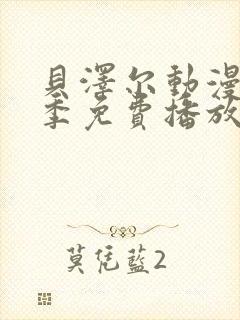 貝澤尔動漫
季免費播放
莫凭藍2